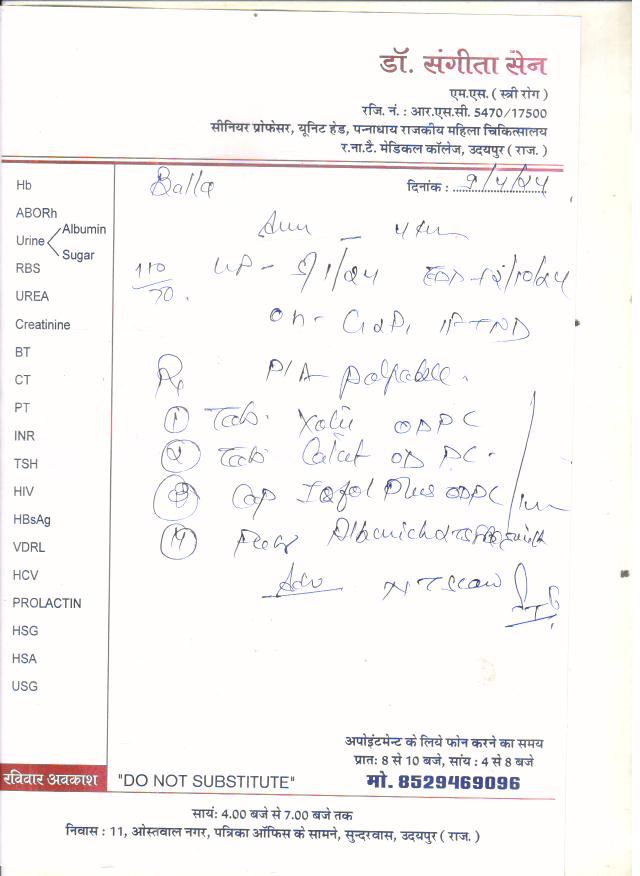 डॉ. संगीता सेन
एम.एस. ( स्त्री रोग )
रजि. नं. : आर.एस.सी. 5470/17500
सीनियर प्रोफेसर, यूनिट हेड, पन्नाधाय राजकीय महिला चिकित्सालय
र.ना.टै. मेडिकल कॉलेज, उदयपुर ( राज. )
दिनांक : 9/4/24
Hb
ABORh
Urine Albumin
Sugar
RBS
UREA
Creatinine
BT
CT
PT
INR
TSH
HIV
HBsAg
VDRL
HCV
PROLACTIN
HSG
HSA
USG
110/70
LMP - 5/1/24 EDD - 12/10/24
P/A - palpable.
① Tab. OD PC
② Tab OD PC
③ Cap Plus OD PC
④
Adv NT Scan
अपोइंटमेन्ट के लिये फोन करने का समय
प्रातः 8 से 10 बजे, सांय : 4 से 8 बजे
मो. 8529469096
रविवार अवकाश "DO NOT SUBSTITUTE"
सायं: 4.00 बजे से 7.00 बजे तक
निवास : 11, ओस्तवाल नगर, पत्रिका ऑफिस के सामने, सुन्दरवास, उदयपुर ( राज. )